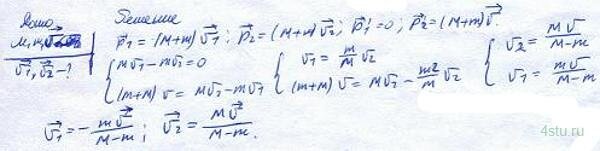 Дано Решение
M, m, v⃗
v⃗₁, v⃗₂ - ?
p⃗₁ = (M+m)v⃗₁; p⃗₂ = (M+m)v⃗₂; p⃗₁' = 0; p⃗₂' = (M+m)v⃗.
{ Mv₁ - mv₂ = 0
(m+M)v = Mv₂ - mv₁
{ v₁ = m/M v₂
(m+M)v = Mv₂ - m²/M v₂
{ v₂ = Mv/(M-m)
v₁ = mv/(M-m)
v⃗₁ = - mv⃗/(M-m); v⃗₂ = Mv⃗/(M-m).
4stu.ru